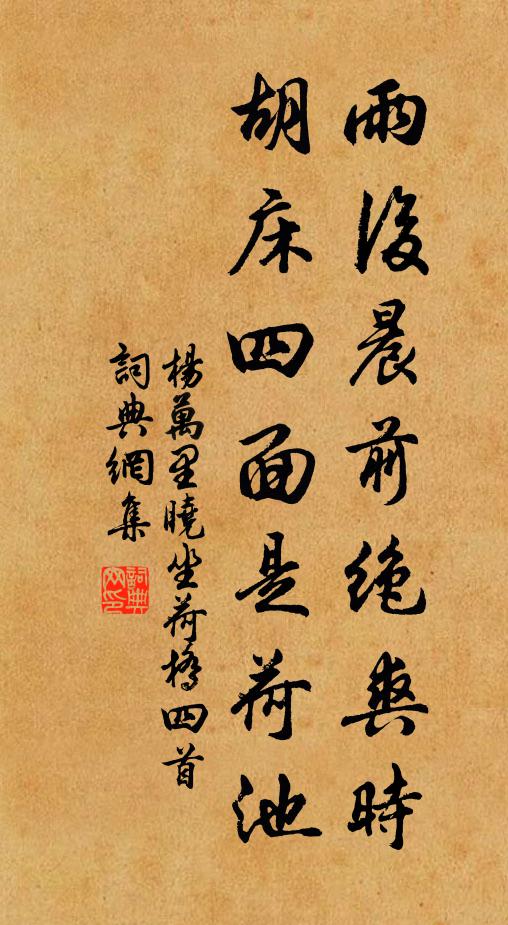 雨後晨前絶爽時
胡床四面是荷池
楊萬里曉坐荷橋四首
詞典網集
詞典网印